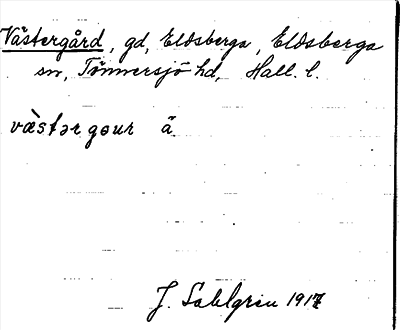 Västergård, gd, Eldsberga, Eldsberga
sn, Tönnersjö hd, Hall. l.
væ̀stərgɑur ä
J. Sahlgren 1917